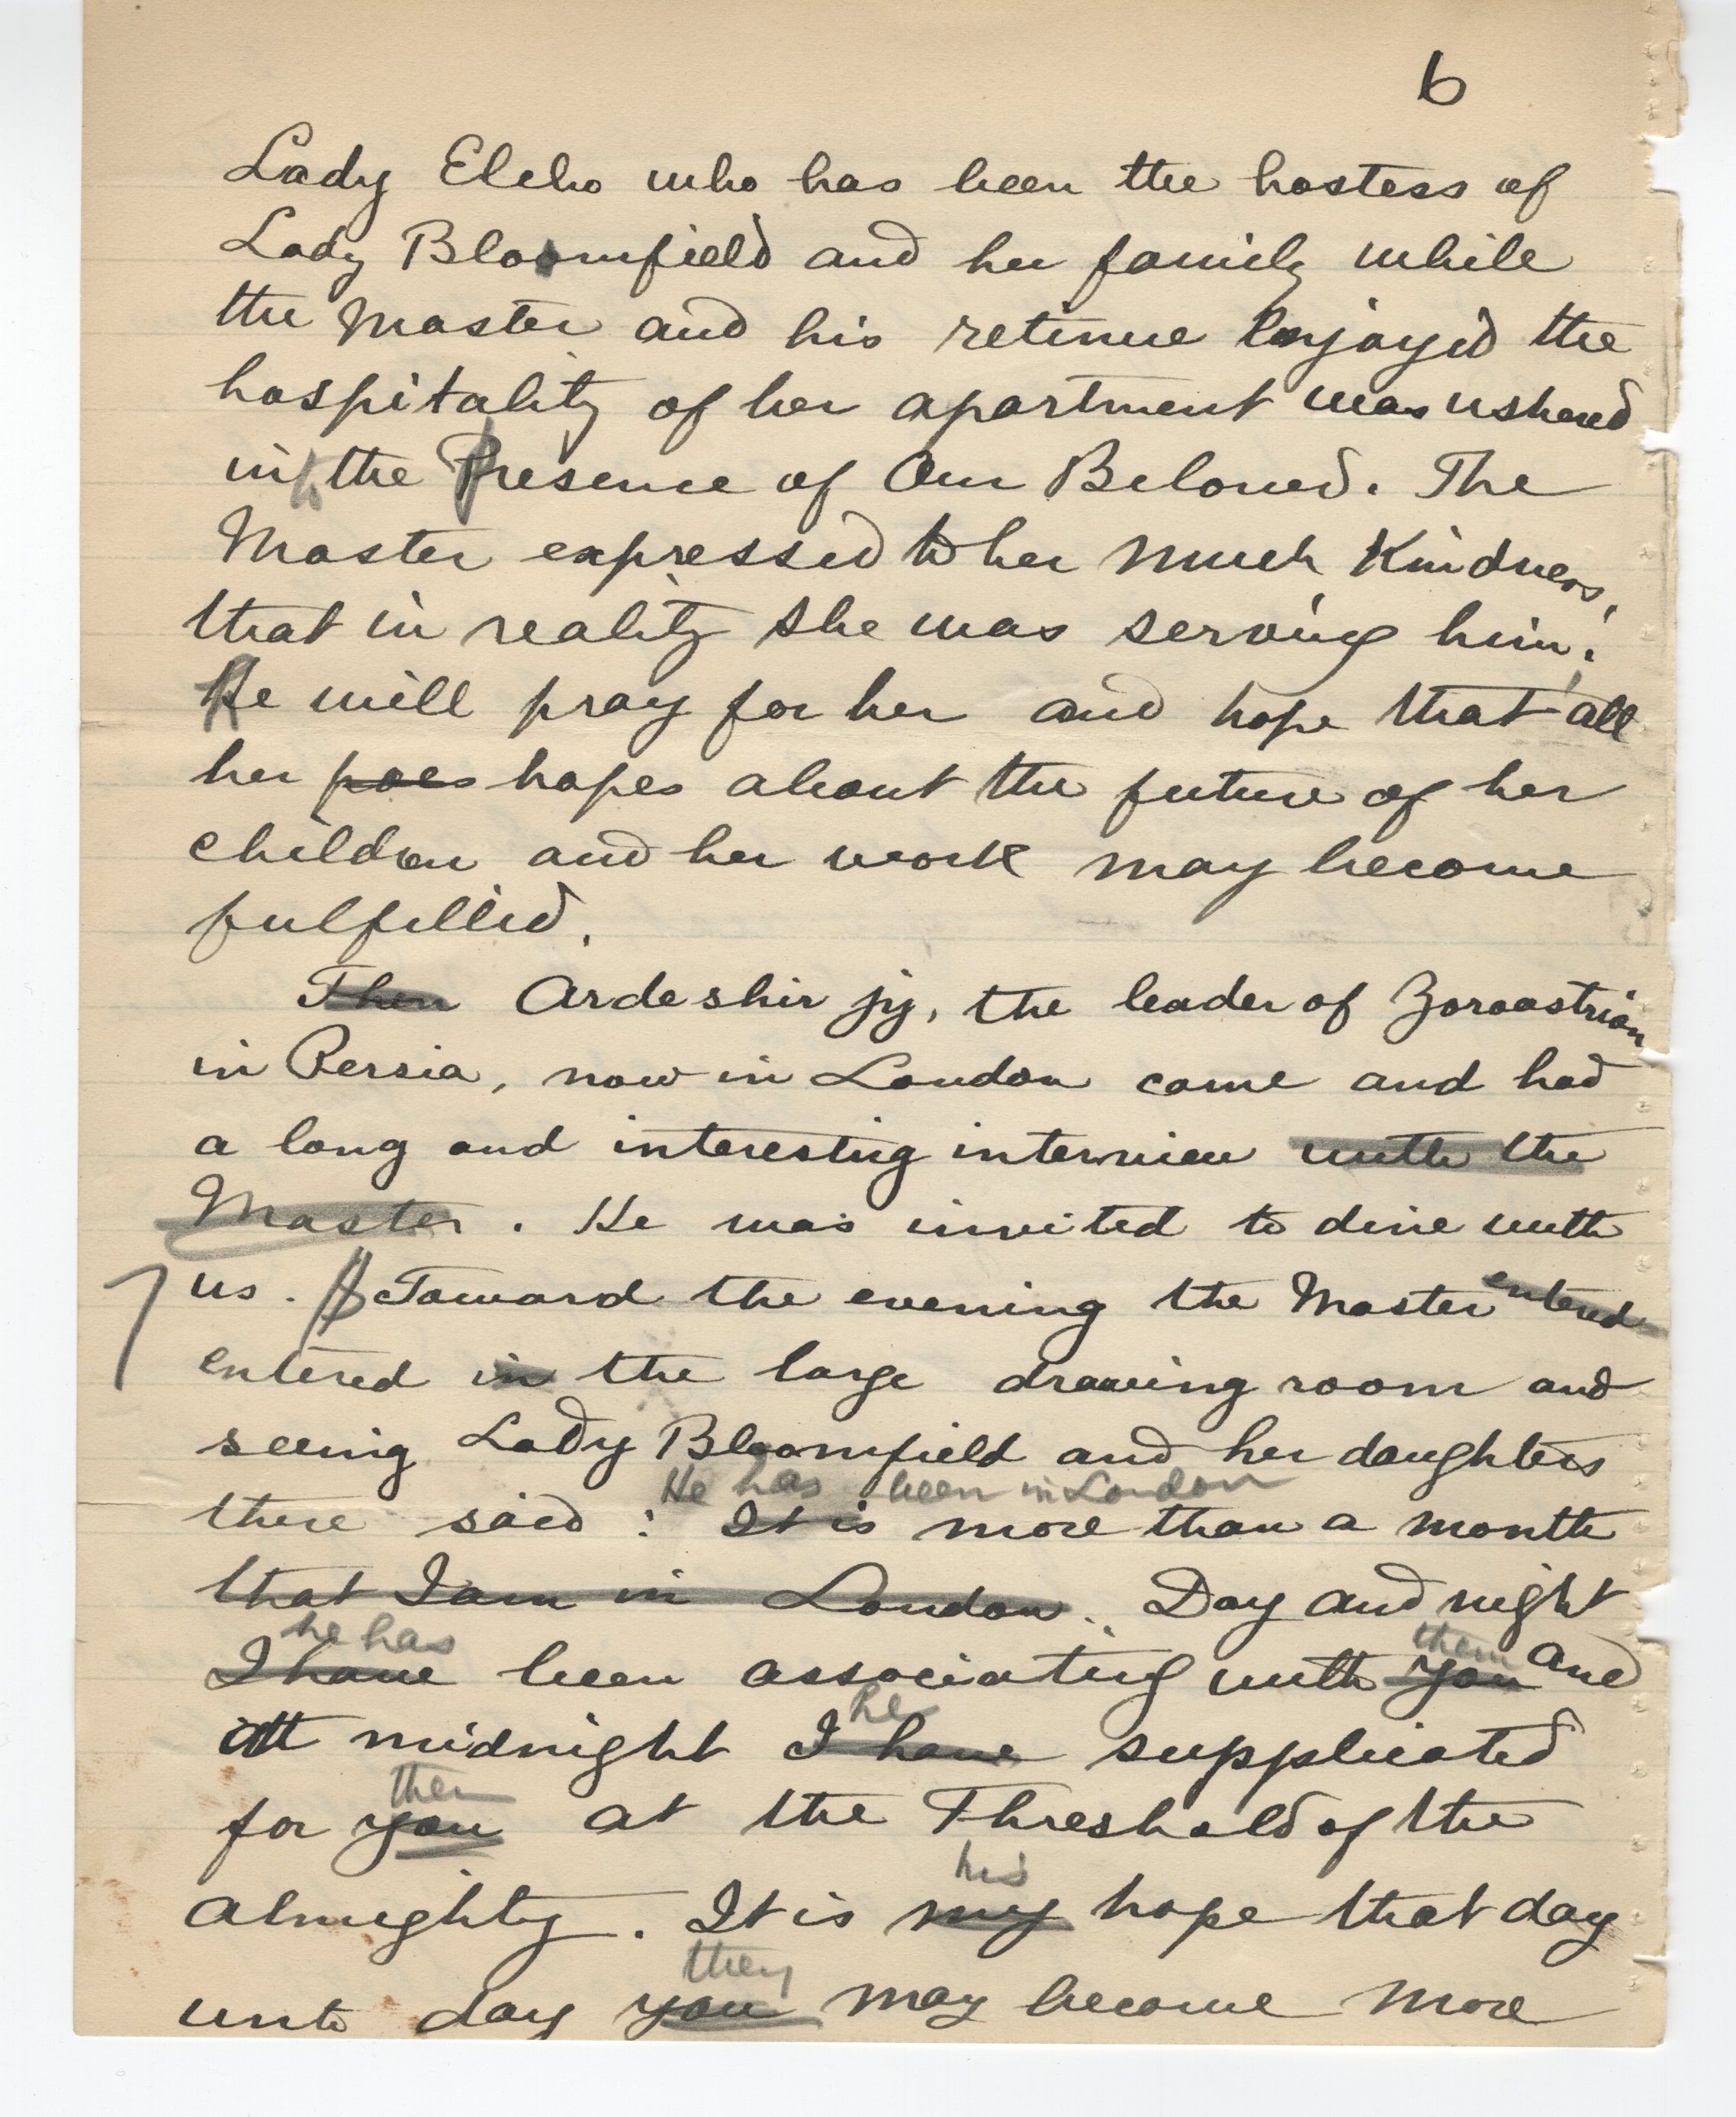 6
Lady Elcho who has been the hostess of
Lady Bloomfield and her family while
the Master and his retinue enjoyed the
hospitality of her apartment was ushered
in to the Presence of Our Beloved. The
Master expressed to her much Kindness,
that in reality she was serving him.
He will pray for her and hope that all
her poes hopes about the future of her
children and her work may become
fulfilled.
Then Ardeshir jy, the leader of Zoroastrian
in Persia, now in London came and had
a long and interesting interview with the
Master. He was invited to dine with
us. ¶ Toward the evening the Master entered
entered in the large drawing room and
seeing Lady Bloomfield and her daughters
He has been in London
there said: It is more than a month
that I am in London. Day and night
he has them
I have been associating with you and
he
at midnight I have supplicated
them
for you at the Threshold of the
his
almighty. It is my hope that day
they
unto day you may become more